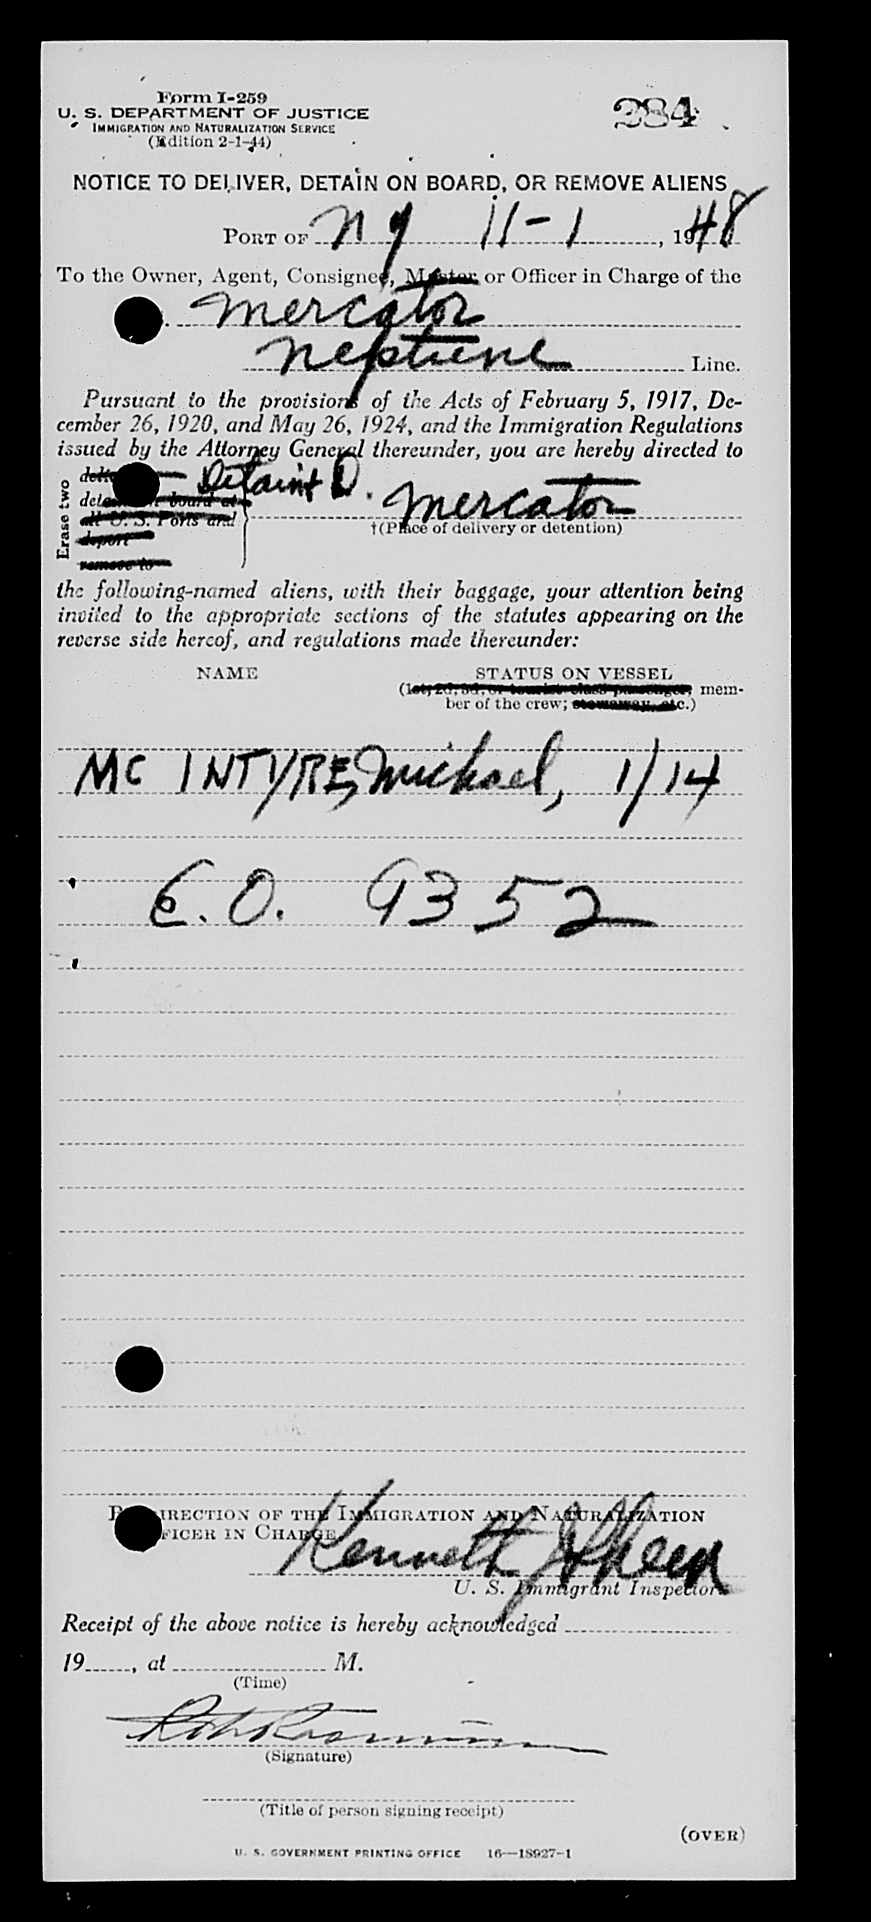 Form I-259
U. S. DEPARTMENT OF JUSTICE
IMMIGRATION AND NATURALIZATION SERVICE
(Edition 2-1-44)
284
NOTICE TO DELIVER, DETAIN ON BOARD, OR REMOVE ALIENS
PORT OF N Y 11-1, 1948
To the Owner, Agent, Consignee, Master or Officer in Charge of the
Mercator
Neptune Line.
Pursuant to the provisions of the Acts of February 5, 1917, De-
cember 26, 1920, and May 26, 1924, and the Immigration Regulations
issued by the Attorney General thereunder, you are hereby directed to
Erase two
detain on board at
all U. S. Ports and
deport
remove to
Mercator
†(Place of delivery or detention)
the following-named aliens, with their baggage, your attention being
invited to the appropriate sections of the statutes appearing on the
reverse side hereof, and regulations made thereunder:
NAME STATUS ON VESSEL
(1st, 2d, 3d, or tourist class passenger, mem-
ber of the crew; stowaway, etc.)
MC INTYRE, Michael, 1/14
E.O. 9352
BY DIRECTION OF THE IMMIGRATION AND NATURALIZATION
OFFICER IN CHARGE
Kenneth J
U. S. Immigrant Inspector.
Receipt of the above notice is hereby acknowledged
19, at M.
(Time)
(Signature)
(Title of person signing receipt)
(OVER)
U. S. GOVERNMENT PRINTING OFFICE 16—18927-1